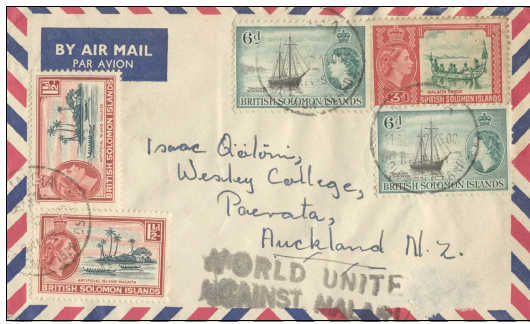 BY AIR MAIL
PAR AVION
6d
BRITISH SOLOMON ISLANDS
3d
MALAITA CANOE
BRITISH SOLOMON ISLANDS
6d
BRITISH SOLOMON ISLANDS
1½d
ARTIFICIAL ISLAND MALAITA
BRITISH SOLOMON ISLANDS
1½d
ARTIFICIAL ISLAND MALAITA
BRITISH SOLOMON ISLANDS
Isaac Qölöni,
Wesley College,
Paerata,
Auckland N.Z.
WORLD UNITE
AGAINST MALARIA